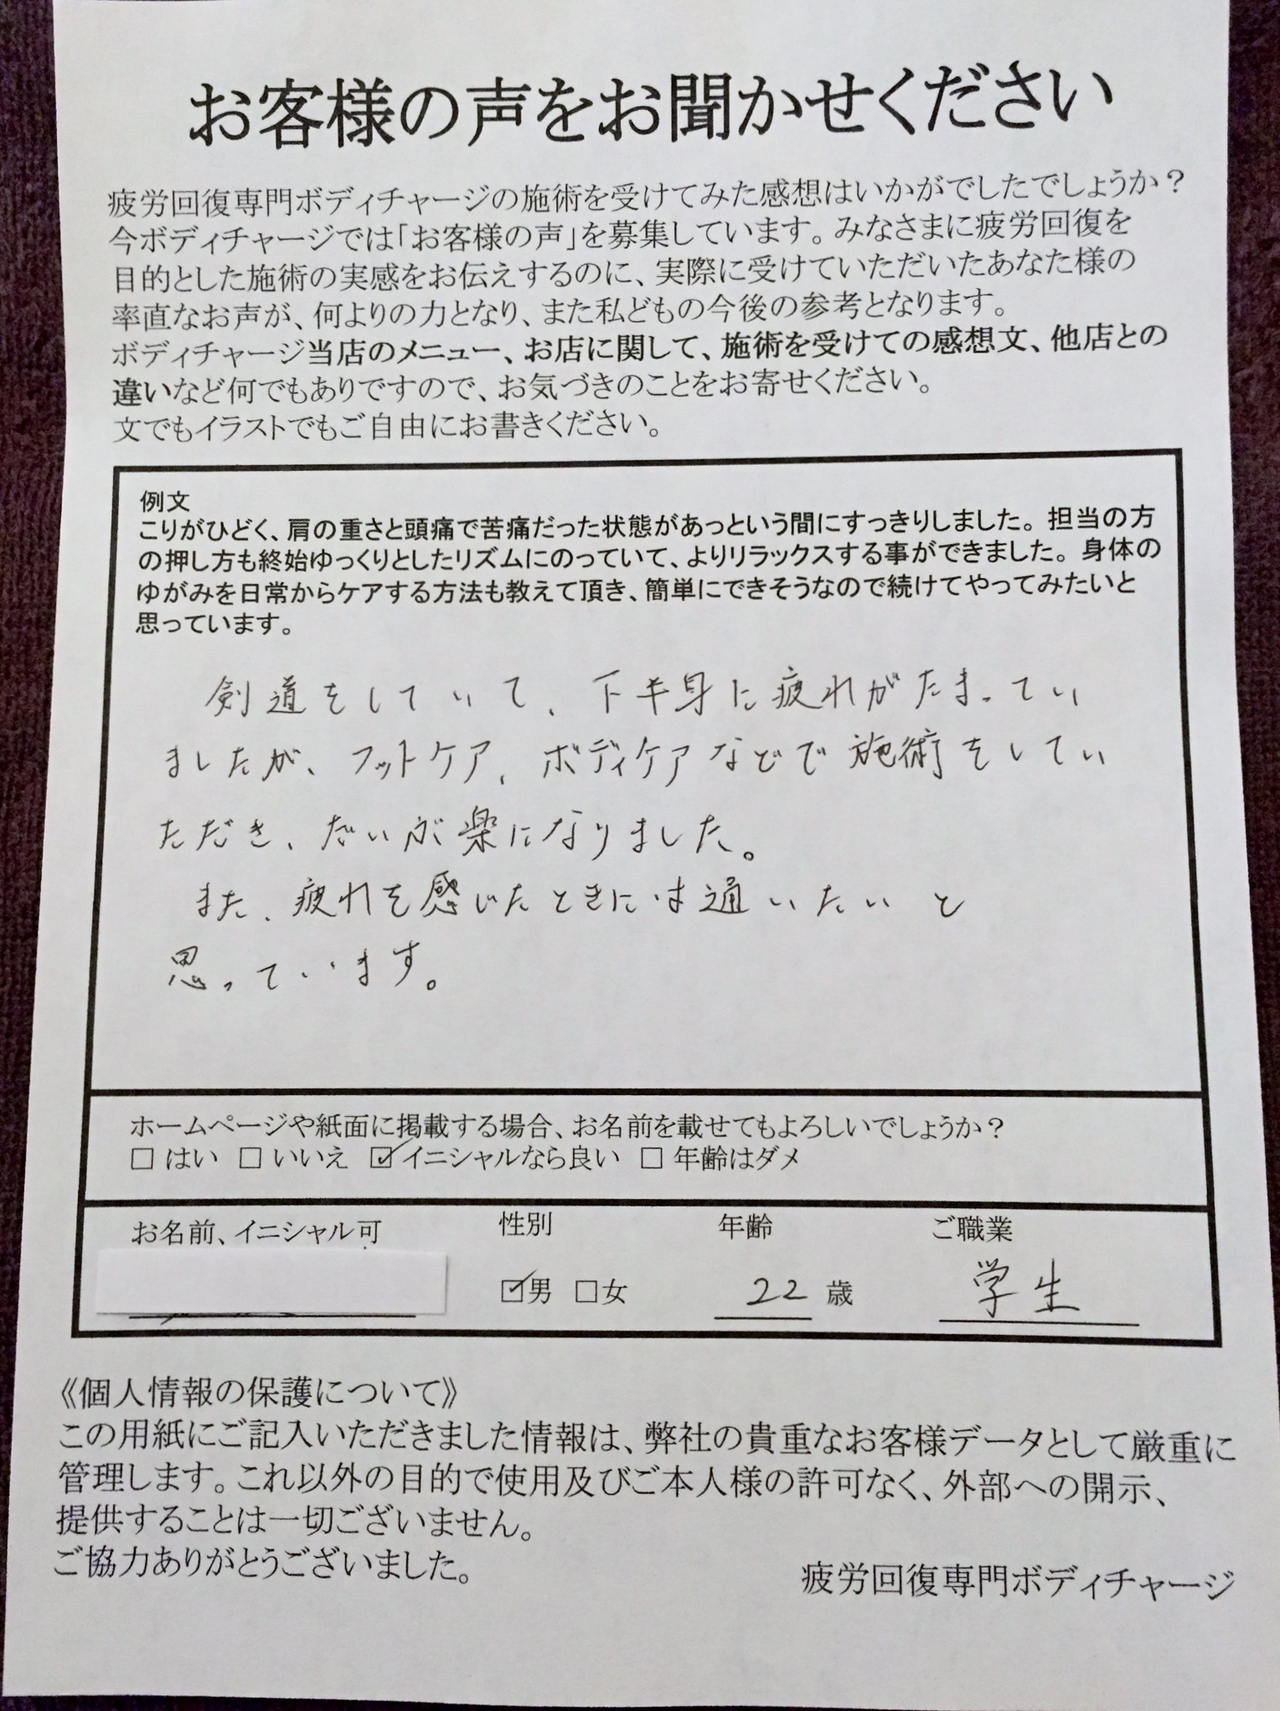 お客様の声をお聞かせください
疲労回復専門ボディチャージの施術を受けてみた感想はいかがでしたでしょうか？
今ボディチャージでは「お客様の声」を募集しています。みなさまに疲労回復を
目的とした施術の実感をお伝えするのに、実際に受けていただいたあなた様の
率直なお声が、何よりの力となり、また私どもの今後の参考となります。
ボディチャージ当店のメニュー、お店に関して、施術を受けての感想文、他店との
違いなど何でもありですので、お気づきのことをお寄せください。
文でもイラストでもご自由にお書きください。
例文
こりがひどく、肩の重さと頭痛で苦痛だった状態があっという間にすっきりしました。担当の方
の押し方も終始ゆっくりとしたリズムにのっていて、よりリラックスする事ができました。身体の
ゆがみを日常からケアする方法も教えて頂き、簡単にできそうなので続けてやってみたいと
思っています。
剣道をしていて、下半身に疲れがたまってい
ましたが、フットケア、ボディケアなどで施術をしてい
ただき、だいぶ楽になりました。
また、疲れを感じたときには通いたいと
思っています。
ホームページや紙面に掲載する場合、お名前を載せてもよろしいでしょうか？
□ はい □ いいえ ☑イニシャルなら良い □ 年齢はダメ
お名前、イニシャル可 性別 年齢 ご職業
☑男 □女 22 歳 学生
《個人情報の保護について》
この用紙にご記入いただきました情報は、弊社の貴重なお客様データとして厳重に
管理します。これ以外の目的で使用及びご本人様の許可なく、外部への開示、
提供することは一切ございません。
ご協力ありがとうございました。
疲労回復専門ボディチャージ